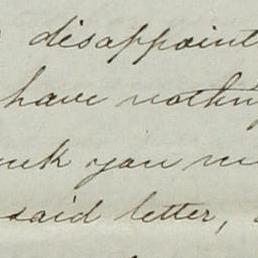 disappoint
have nothing
you
said letter,